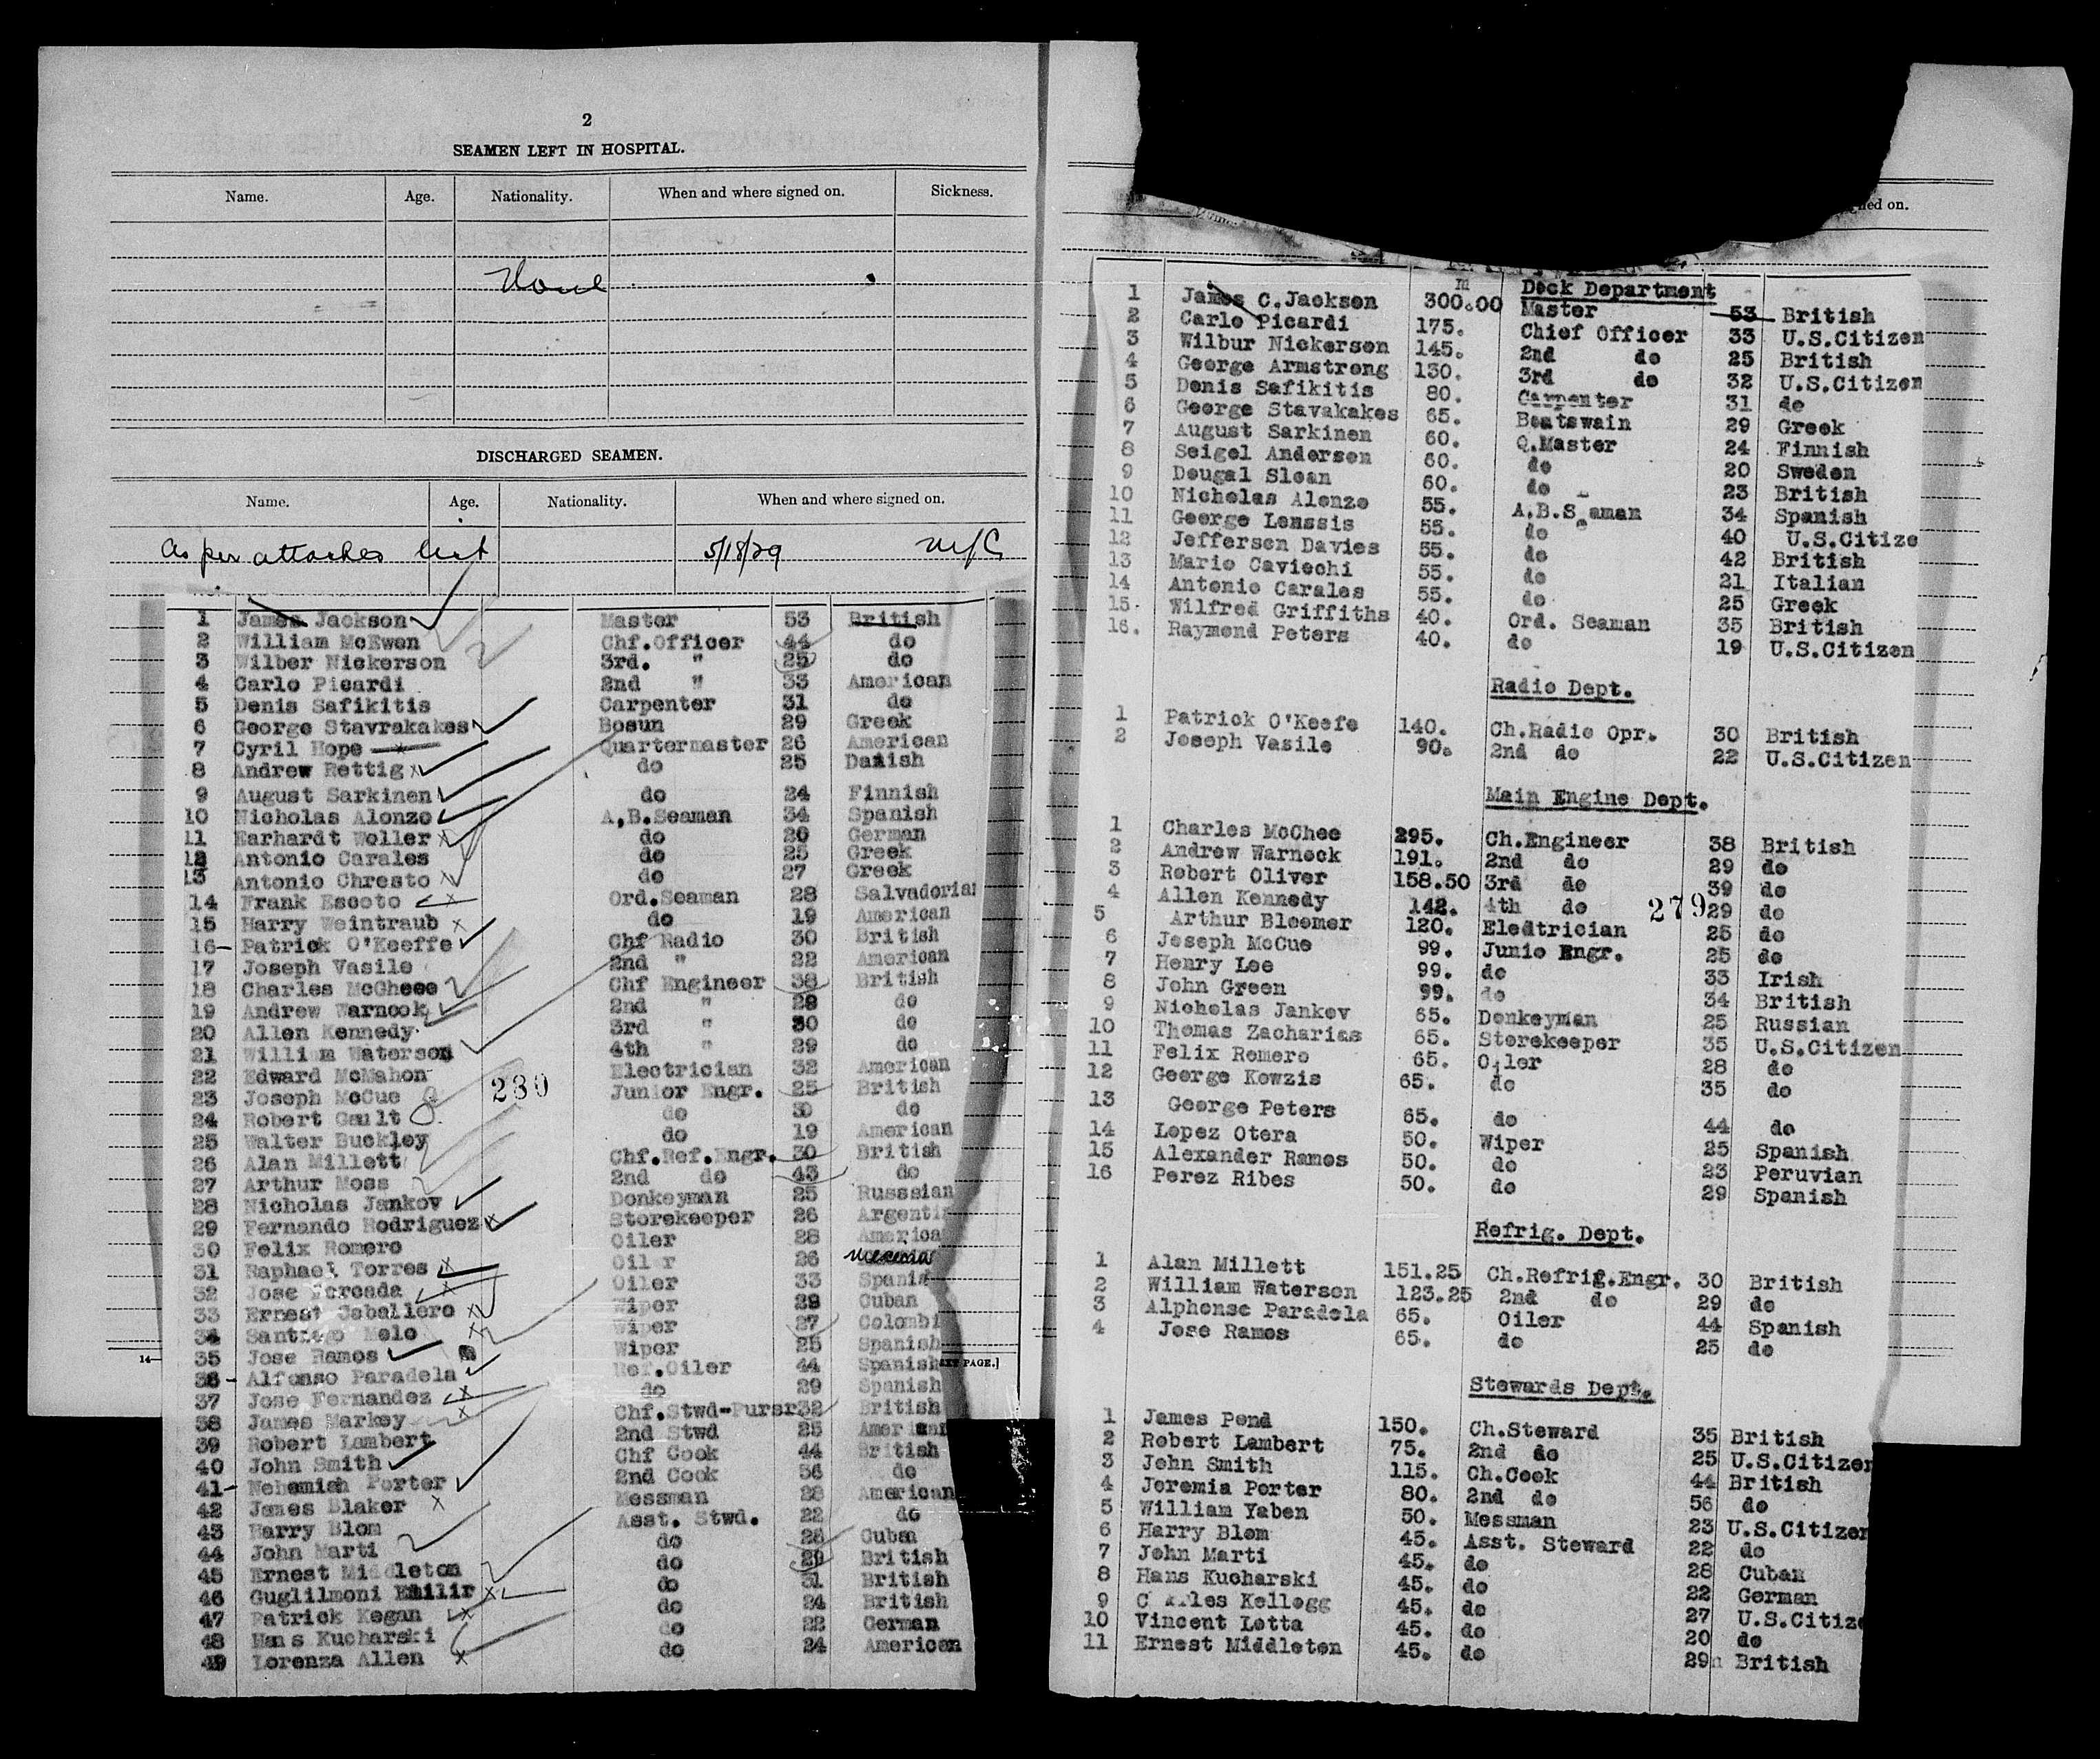 2
SEAMEN LEFT IN HOSPITAL.
Name. Age. Nationality. When and where signed on. Sickness.
None
DISCHARGED SEAMEN.
Name. Age. Nationality. When and where signed on.
As per attaches list 5/18/29
1 James Jackson Master 53 British
2 William McEwen Chf.Officer 44 do
3 Wilber Nickerson 3rd. " 25 do
4 Carlo Picardi 2nd " 33 American
5 Denis Safikitis Carpenter 31 do
6 George Stavrakakes Bosun 29 Greek
7 Cyril Hope Quartermaster 26 American
8 Andrew Rettig x do 25 Danish
9 August Sarkinen do 24 Finnish
10 Nicholas Alonzo A.B.Seaman 34 Spanish
11 Earhardt Woller x do 20 German
12 Antonio Carales do 25 Greek
13 Antonio Chresto x do 27 Greek
14 Frank Escoto x Ord.Seaman 28 Salvadorian
15 Harry Weintraub x do 19 American
16- Patrick O'Keeffe Chf Radio 30 British
17 Joseph Vasile 2nd " 22 American
18 Charles McGheee Chf Engineer 38 British
19 Andrew Warnock 2nd " 29 do
20 Allen Kennedy 3rd " 30 do
21 William Waterson 4th " 29 do
22 Edward McMahon Electrician 32 American
23 Joseph McCue Junior Engr. 25 British
230
24 Robert Gault do 30 do
25 Walter Buckley do 19 American
26 Alan Millett Chf.Ref.Engr. 30 British
27 Arthur Moss 2nd do 43 do
28 Nicholas Jankov Donkeyman 25 Russsian
29 Fernando Rodriguez x Storekeeper 26 Argentin
30 Felix Romero Oiler 28 America
31 Raphael Torres x Oiler 26
32 Jose Forcada x Oiler 33 Spanis
33 Ernest Caballero x Wiper 29 Cuban
34 Santiago Melo x Wiper 27 Colombi
35 Jose Ramos Wiper 25 Spanish
36 - Alfonso Paradela Ref.Oiler 44 Spanish
37 Jose Fernandez x do 29 Spanish
38 James Markey x Chf.Stwd-Pursr 32 British
39 Robert Lambert 2nd Stwd 25 American
40 John Smith Chf Cook 44 British
41- Nehemiah Porter 2nd Cook 56 do
42 James Blaker x Messman 28 American
43 Harry Blom Asst. Stwd. 22 do
44 John Marti do 28 Cuban
45 Ernest Middleton do 29 British
46 Guglilmoni Emilir x do 31 British
47 Patrick Kegan x do 24 British
48 Hans Kucharski do 22 German
49 Lorenza Allen x do 24 American
14—
EXT PAGE.]
ned on.
Deck Department
1 James C.Jackson 300.00 Master 53 British
2 Carlo Picardi 175. Chief Officer 33 U.S.Citizen
3 Wilbur Nickerson 145. 2nd do 25 British
4 George Armstrong 130. 3rd do 32 U.S.Citizen
5 Denis Safikitis 80. Carpenter 31 do
6 George Stavakakes 65. Boatswain 29 Greek
7 August Sarkinen 60. Q.Master 24 Finnish
8 Seigel Andersen 60. do 20 Sweden
9 Dougal Sloan 60. do 23 British
10 Nicholas Alonzo 55. A.B.Seaman 34 Spanish
11 George Lenssis 55. do 40 U.S.Citize
12 Jefferson Davies 55. do 42 British
13 Mario Caviechi 55. do 21 Italian
14 Antonio Carales 55. do 25 Greek
15. Wilfred Griffiths 40. Ord. Seaman 35 British
16. Raymond Peters 40. do 19 U.S.Citizen
Radio Dept.
1 Patrick O'Keefe 140. Ch.Radio Opr. 30 British
2 Joseph Vasile 90. 2nd do 22 U.S.Citizen
Main Engine Dept.
1 Charles McChee 295. Ch.Engineer 38 British
2 Andrew Warnock 191. 2nd do 29 do
3 Robert Oliver 158.50 3rd do 39 do
4 Allen Kennedy 142. 4th do 29 do
279
5 Arthur Bloomer 120. Eledtrician 25 do
6 Joseph McCue 99. Junio Engr. 25 do
7 Henry Lee 99. do 33 Irish
8 John Green 99. do 34 British
9 Nicholas Jankov 65. Donkeyman 25 Russian
10 Thomas Zacharias 65. Storekeeper 35 U.S.Citizen
11 Felix Romero 65. Oiler 28 do
12 George Kowzis 65. do 35 do
13 George Peters 65. do 44 do
14 Lopez Otera 50. Wiper 25 Spanish
15 Alexander Ramos 50. do 23 Peruvian
16 Perez Ribes 50. do 29 Spanish
Refrig. Dept.
1 Alan Millett 151.25 Ch.Refrig.Engr. 30 British
2 William Waterson 123.25 2nd do 29 do
3 Alphonse Paradela 65. Oiler 44 Spanish
4 Jose Ramos 65. do 25 do
Stewards Dept.
1 James Pond 150. Ch.Steward 35 British
2 Robert Lambert 75. 2nd do 25 U.S.Citizen
3 John Smith 115. Ch.Cook 44 British
4 Jeremia Porter 80. 2nd do 56 do
5 William Yaben 50. Messman 23 U.S.Citizen
6 Harry Blom 45. Asst. Steward 22 do
7 John Marti 45. do 28 Cuban
8 Hans Kucharski 45. do 22 German
9 Kellogg 45. do 27 U.S.Citize
10 Vincent Lotta 45. do 20 do
11 Ernest Middleton 45. do 29 British